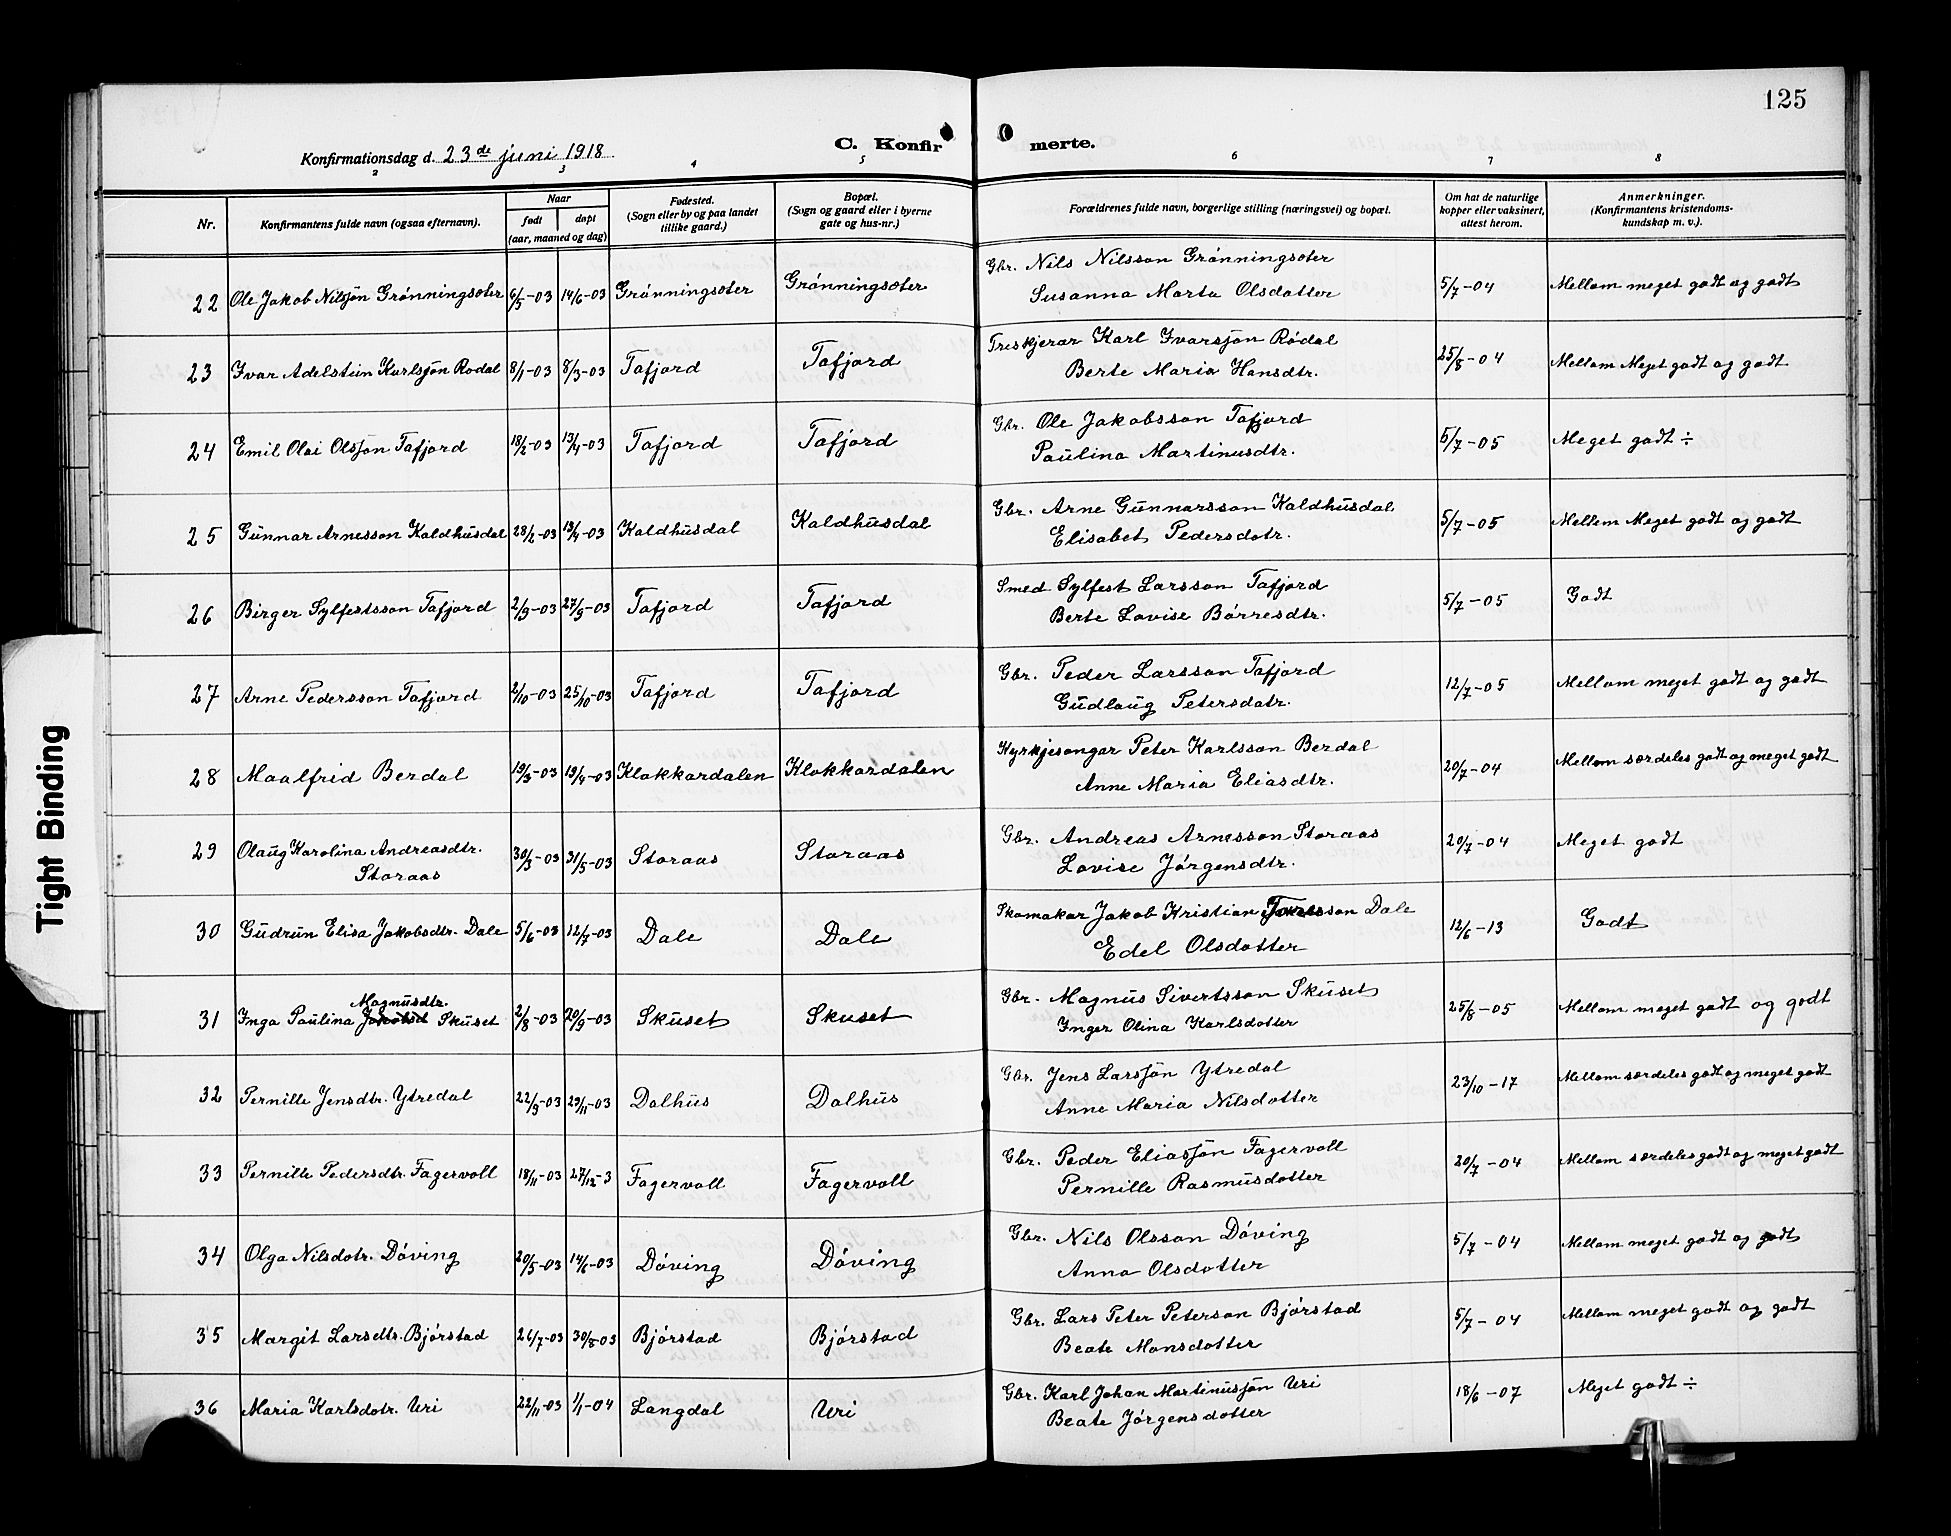 125
Konfirmationsdag d. 23de juni 1918
C. Konfirmerte.
2 3 4 5 6 7 8
Nr. Konfirmantens fulde navn (ogsaa efternavn). Naar født døpt (aar, maaned og dag) Fødested. (Sogn eller by og paa landet tillike gaard.) Bopæl. (Sogn og gaard eller i byerne gate og hus-nr.) Forældrenes fulde navn, borgerlige stilling (næringsvei) og bopæl. Om hat de naturlige kopper eller vaksinert, attest herom. Anmerkninger. (Konfirmantens kristendomskundskap m. v.).
22 Ole Jakob Nilsjón Grónningsæter 6/5-03 14/6-03 Grónningsæter Grónningsæter Gbr. Nils Nilsson Grónningsæter 5/7-04 Mellom meget godt og godt
Susanna Marta Olsdotter
23 Ivar Adelstein Karlsjón Rodal 8/1-03 8/3-03 Tafjord Tafjord Treskjerar Karl Ivarsjón Ródal 25/8-04 Mellom Meget godt og godt
Berte Maria Hansdtr.
24 Emil Olai Olsjón Tafjord 18/2-03 13/4-03 Tafjord Tafjord Gbr. Ole Jakobsson Tafjord 5/7-05 Meget godt ÷
Paulina Martinusdtr.
25 Gunnar Arnesson Kaldhusdal 28/2-03 13/4-03 Kaldhusdal Kaldhusdal Gbr. Arne Gunnarsson Kaldhusdal 5/7-05 Mellem Meget godt og godt
Elisabet Pedersdotr.
26 Birger Sylfestsson Tafjord 2/9-03 27/9-03 Tafjord Tafjord Smed Sylfest Larsson Tafjord 5/7-05 Godt
Berte Lovise Bórresdtr.
27 Arne Pedersson Tafjord 2/10-03 25/10-03 Tafjord Tafjord Gbr. Peder Larsson Tafjord 12/7-05 Mellom meget godt og godt
Gudlaug Petersdatr.
28 Maalfrid Berdal 19/3-03 19/4-03 Klokkardalen Klokkardalen Kyrkjesongar Peter Karlsson Berdal 20/7-04 Mellom særdeles godt og meget godt
Anne Maria Eliasdtr.
29 Olaug Karolina Andreasdtr. Storaas 30/3-03 31/5-03 Storaas Storaas Gbr. Andreas Arnesson Storaas 20/7-04 Meget godt
Lovise Jórgensdtr.
30 Gudrun Elisa Jakobsdtr. Dale 5/6-03 12/7-03 Dale Dale Skomakar Jakob Kristian Dale 12/6-13 Godt
Edel Olsdotter
31 Inga Paulina Magnusdtr. Skuset 2/8-03 20/9-03 Skuset Skuset Gbr. Magnus Sivertsson Skuset 25/8-05 Mellom meget godt og godt
Inger Olina Karlsdotter
32 Pernille Jensdtr. Ytredal 22/9-03 29/11-03 Dalhus Dalhus Gbr. Jens Larsjón Ytredal 23/10-17 Mellem særdeles godt og meget godt
Anne Maria Nilsdotter
33 Pernille Pedersdtr. Fagervoll 18/11-03 27/12-3 Fagervoll Fagervoll Gbr. Peder Eliasjón Fagervoll 20/7-04 Mellom særdeles godt og meget godt
Pernille Rasmusdotter
34 Olga Nilsdotr. Dóving 20/5-03 14/6-03 Dóving Dóving Gbr. Nils Olsson Dóving 5/7-04 Mellom meget godt og godt
Anna Olsdotter
35 Margit Larsdtr. Bjórstad 26/7-03 30/8-03 Bjórstad Bjórstad Gbr. Lars Peter Peterson Bjórstad 5/7-04 Mellom meget godt og godt
Beate Monsdotter
36 Maria Karlsdotr. Uri 22/11-03 1/1-04 Langdal Uri Gbr. Karl Johan Martinusjón Uri 18/6-07 Meget godt ÷
Beate Jórgensdotter
Tight Binding